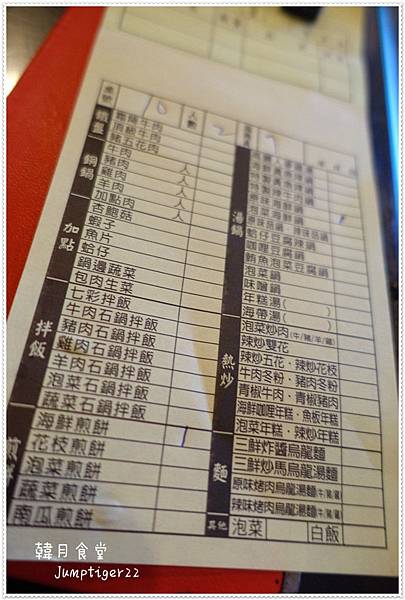 桌號 10 人數 2
鐵盤
霜降牛肉
頂級牛肉
豬五花肉
銅鍋
牛肉
豬肉 人
雞肉 人
羊肉 人
加點肉 人
加點
杏鮑菇
蝦子
魚片
蛤仔
鍋邊蔬菜
包肉生菜
拌飯
七彩拌飯
牛肉石鍋拌飯
豬肉石鍋拌飯
雞肉石鍋拌飯
羊肉石鍋拌飯
泡菜石鍋拌飯
蔬菜石鍋拌飯
煎餅
海鮮煎餅
花枝煎餅 1
泡菜煎餅
蔬菜煎餅
南瓜煎餅
湯鍋
泡菜海鮮鍋
蛤仔豆腐辣鍋
咖哩豆腐鍋
鮪魚泡菜豆腐鍋
泡菜鍋
味噌鍋
年糕湯( )
海帶湯( )
熱炒
泡菜炒肉(牛/豬/羊/雞)
辣炒雙花
辣炒五花·辣炒花枝
牛肉冬粉·豬肉冬粉
青椒牛肉·青椒豬肉
海鮮咖哩年糕·魚板年糕
泡菜年糕·辣炒年糕
麵
三鮮炸醬烏龍麵
三鮮炒馬烏龍湯麵
原味烤肉烏龍湯麵(牛/豬/雞)
辣味烤肉烏龍湯麵(牛/豬/雞)
其他 泡菜 白飯
韓月食堂
Jumptiger22